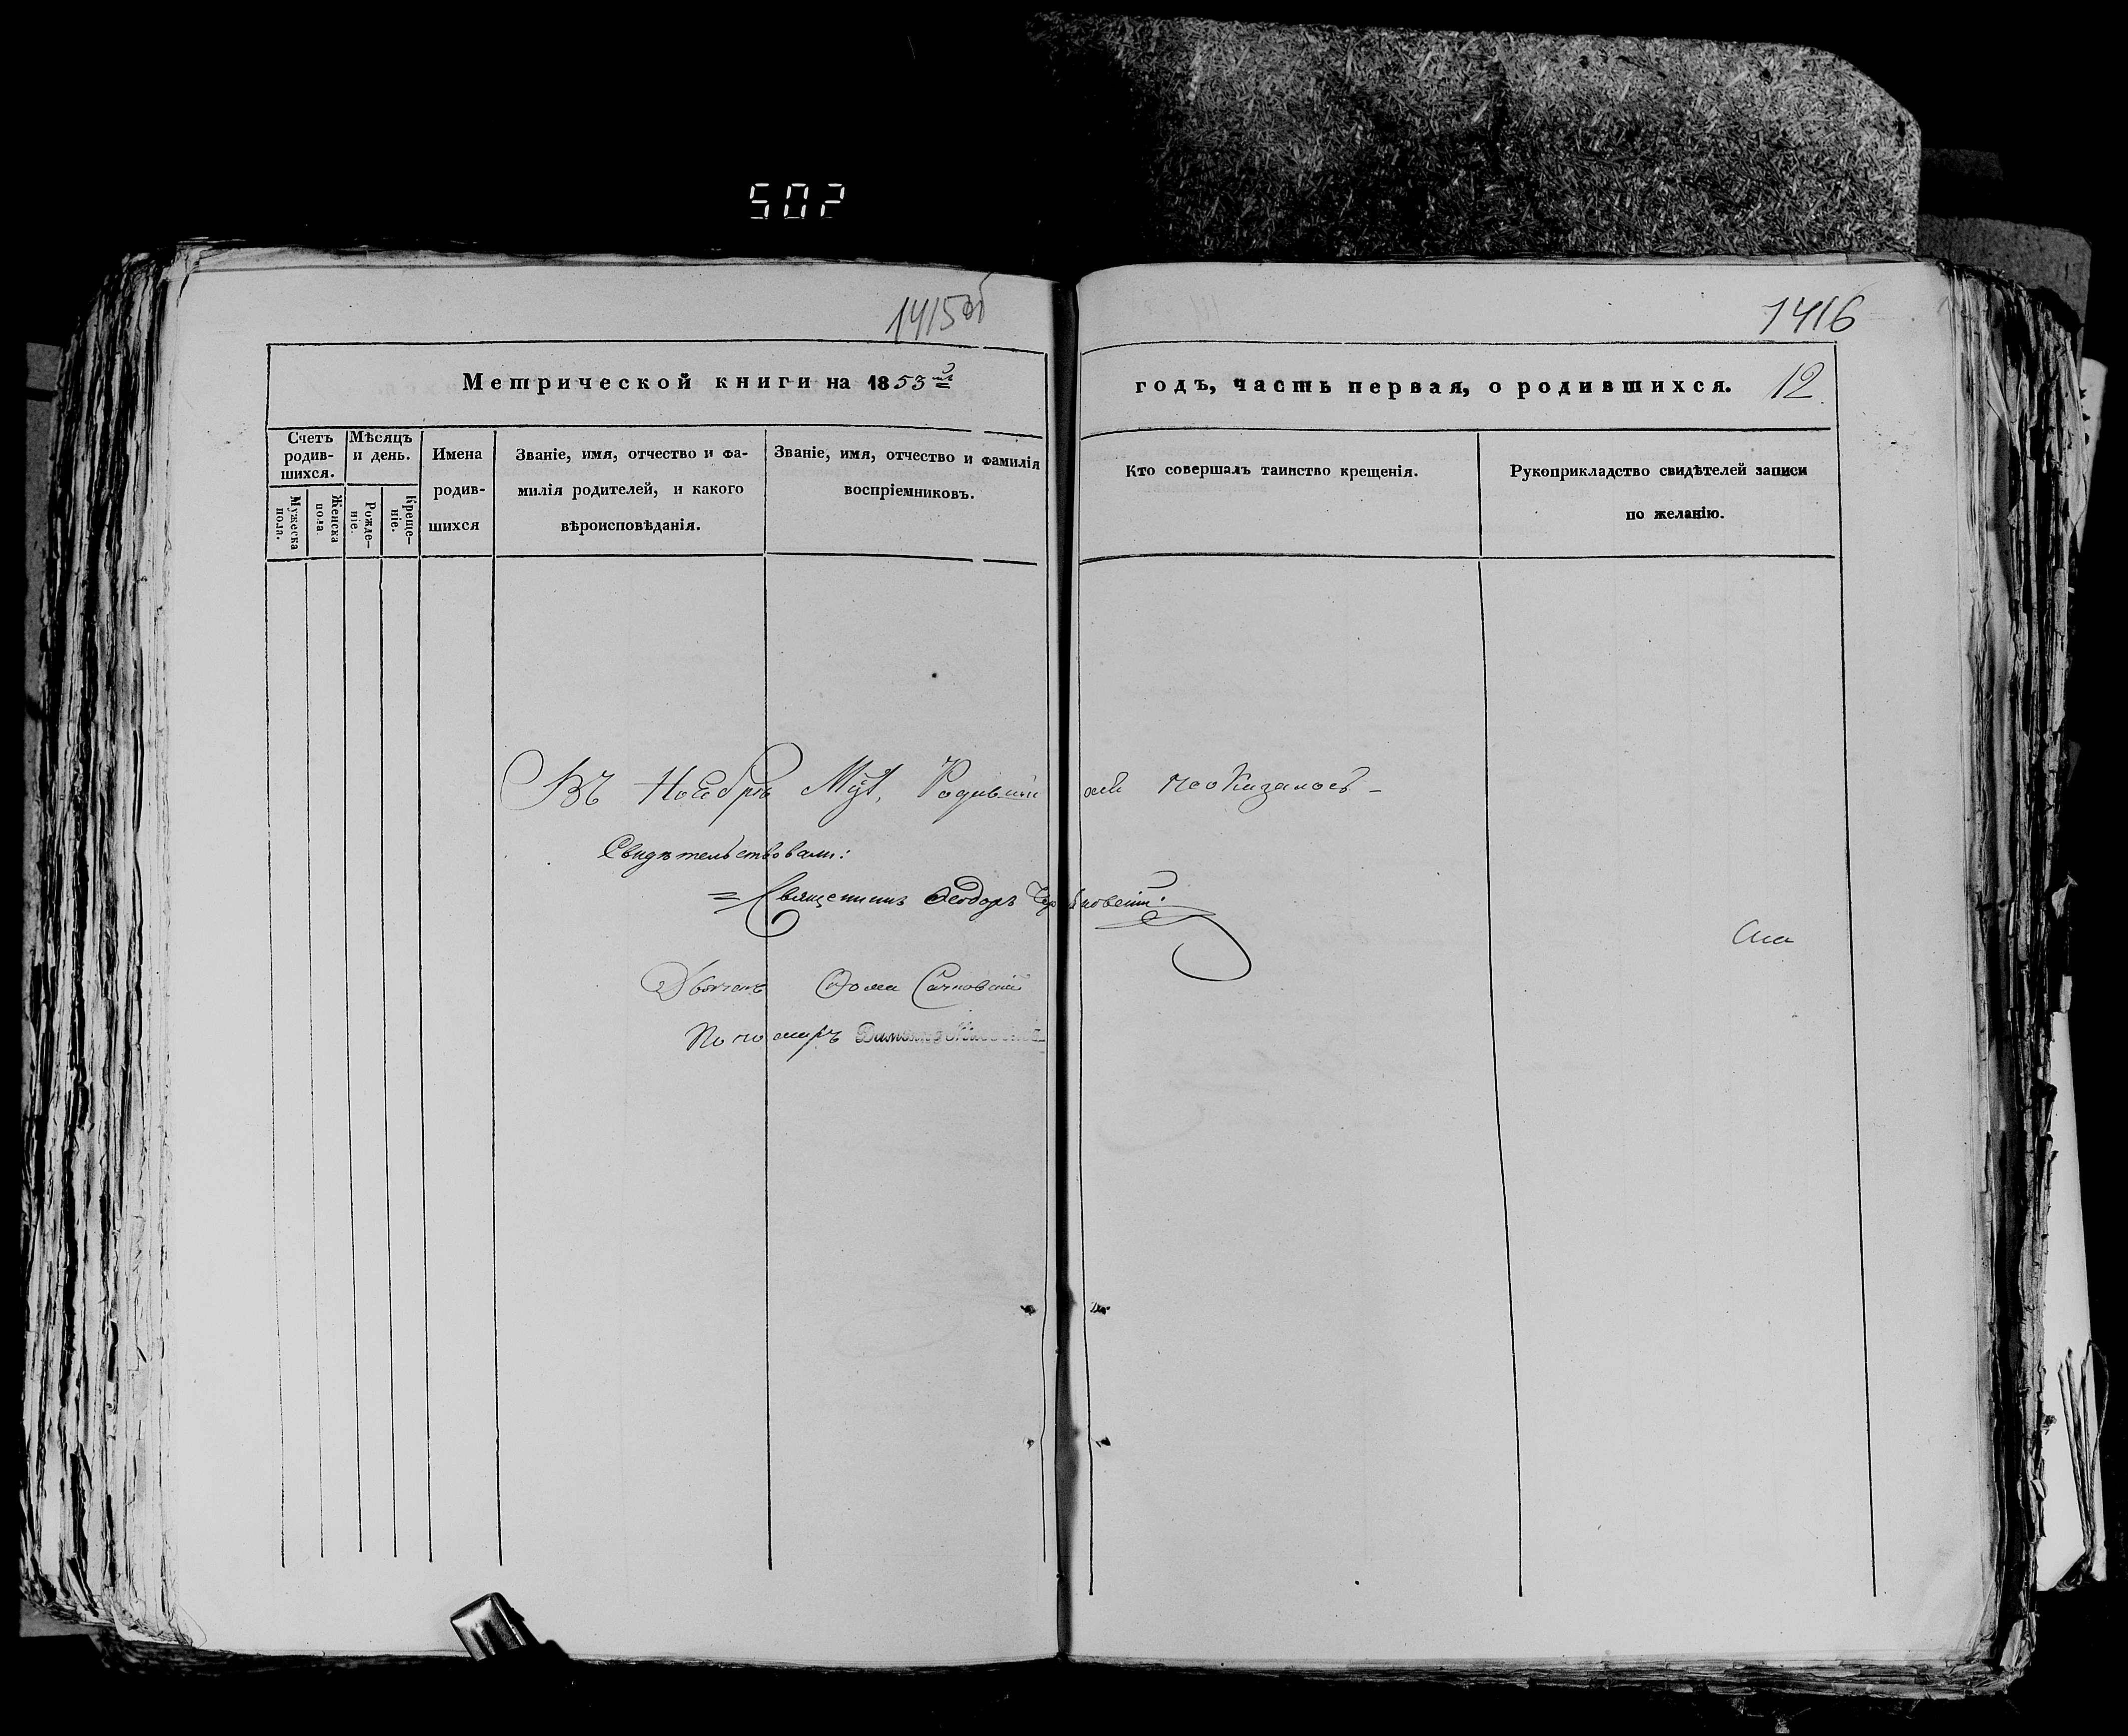 502
1415об
1416
Метрической книги на 1853й годъ, часть первая, о родившихся. 12.
Счетъ родив-шихся.
Мужеска пола.
Женска пола
Мѣсяцъ и день.
Рожде-ніе.
Креще-ніе.
Имена
родив-
шихся
Званіе, имя, отчество и фа-
милія родителей, и какого
вѣроисповѣданія.
Званіе, имя, отчество и фамилія
воспріемниковъ.
Кто совершалъ таинство крещенія.
Рукоприкладство свидѣтелей записи
по желанію.
Въ Ноябрѣ Родившихся неоказалось
Свидѣтельствовали:
Священникъ Феодоръ
Дьячекъ Фома
Пономарь